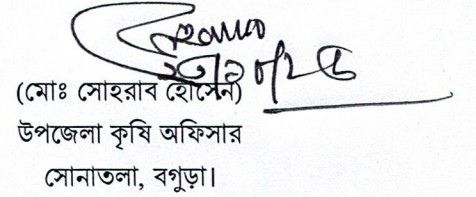 (মোঃ সোহরাব হোসেন)
উপজেলা কৃষি অফিসার
সোনাতলা, বগুড়া।